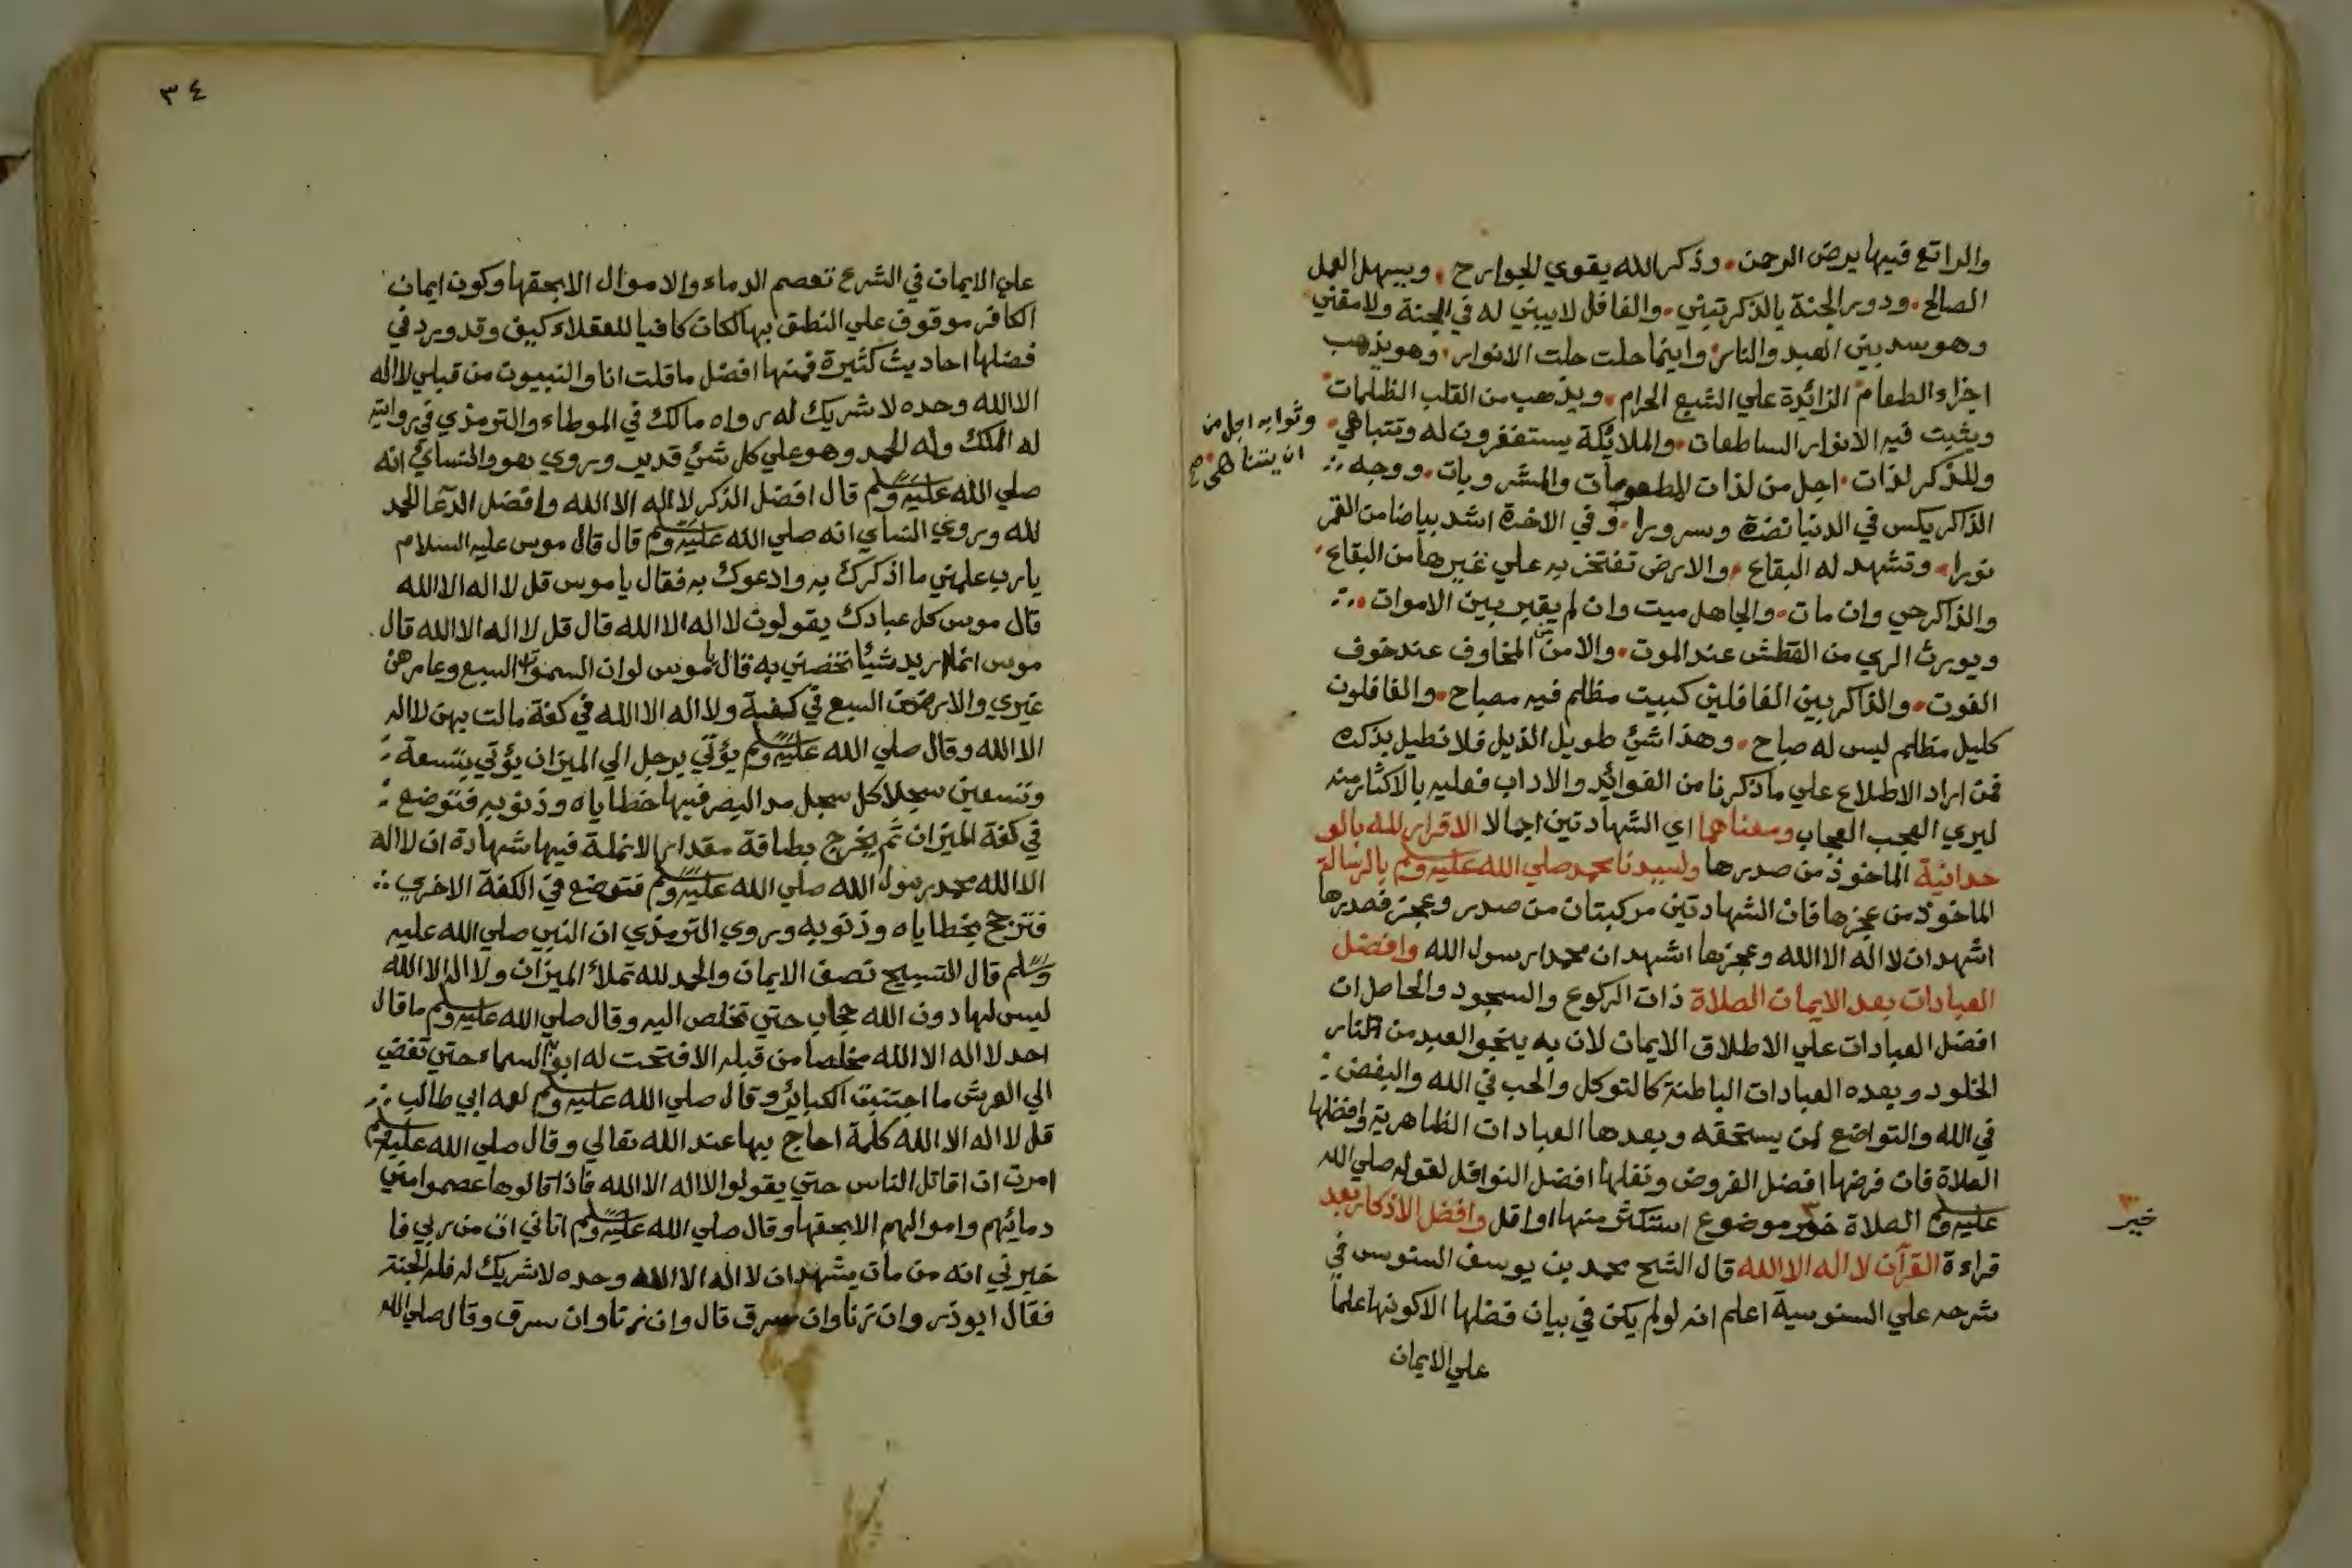 والراتع فيها يرضي الرحمن وذكر الله يقوي الجوارح ويسهل العمل
الصالح ودور الجنة بالذكر تبني والغافل لا يبني له في الجنة ولا مقني
وهو سد بين العبد والنار واينما حلت حلت الانوار وهو يذهب
اجزاء الطعام الزائدة علي الشبع الحرام ويذهب من القلب الظلمات
ويثبت فيه الانوار الساطعات والملائكة يستغفرون له وتتباهي
وثوابه اجل من
ان يتناهي صح
وللذكر لذات اجل من لذات المطعومات والمشروبات ووجه
الذاكر يكس في الدنيا نضرة وسرورا وفي الاخرة اشد بياضا من القمر
نورا وتشهد له البقاع والارض تفتخر به علي غيرها من البقاع
والذاكر حي وان مات والجاهل ميت وان لم يقبر بين الاموات
ويورث الري من العطش عند الموت والامن من المخاوف عند خوف
الفوت والذاكر بين الغافلين كبيت مظلم فيه مصباح والغافلون
كليل مظلم ليس له صباح وهذا شئ طويل الذيل فلا نطيل بذكره
فمن اراد الاطلاع علي ما ذكرنا من الفوائد والاداب فعليه بالاكثار منه
ليري العجب العجاب ومعناهما اي الشهادتين اجمالا الاقرار لله بالو
حدانية الماخوذ من صدرها ولسيدنا محمد صلي الله عليه وسلم بالرسالة
الماخوذ من عجزها فان الشهادتين مركبتان من صدر وعجز فصدرها
اشهد ان لا اله الا الله وعجزها اشهد ان محمدا رسول الله وافضل
العبادات بعد الايمان الصلاة ذات الركوع والسجود والحاصل ان
افضل العبادات علي الاطلاق الايمان لان به ينجو العبد من النار
الخلود وبعده العبادات الباطنة كالتوكل والحب في الله والبغض
في الله والتواضع لمن يستحقه وبعدها العبادات الظاهرية وافضلها
الصلاة فان فرضها افضل الفروض ونفلها افضل النوافل لقوله صلي الله
عليه وسلم الصلاة خير موضوع استكثر منها او اقل وافضل الاذكار بعد
خير
قراءة القرآن لا اله الا الله قال الشيخ محمد بن يوسف السنوس في
شرحه علي السنوسية اعلم انه لو لم يكن في بيان فضلها الا كونها علما
علي الايمان
٣٤
علي الايمان في الشرع تعصم الدماء والاموال الا بحقها وكون ايمان
الكافر موقوف علي النطق بها لكان كافيا للعقلاء كيف وقد ورد في
فضلها احاديث كثيرة فمنها افضل ما قلت انا والنبيون من قبلي لا اله
الا الله وحده لا شريك له رواه مالك في الموطاء والترمذي في روايته
له الملك وله الحمد وهو علي كل شئ قدير وروي هو والنسائ انه
صلي الله عليه وسلم قال افضل الذكر لا اله الا الله وافضل الدعا الحمد
لله وروي النساي انه صلي الله عليه وسلم قال قال موس عليه السلام
يا رب علمني ما اذكرك به وادعوك به فقال يا موس قل لا اله الا الله
قال موس كل عبادك يقولون لا اله الا الله قال قل لا اله الا الله قال
موس انما اريد شيئا تخصني به قال يا موس لو ان السموات السبع وعامرهن
غيري والارضين السبع في كفة ولا اله الا الله في كفة مالت بهن لا اله
الا الله وقال صلي الله عليه وسلم يؤتي برجل الي الميزان يؤتي بتسعة
وتسعين سجلا كل سجل مد البصر فيها خطاياه وذنوبه فتوضع
في كفة الميزان ثم يخرج بطاقة مقدار الانملة فيها شهادة ان لا اله
الا الله محمد رسول الله صلي الله عليه وسلم فتوضع في الكفة الاخري
فترجح بخطاياه وذنوبه وروي الترمذي ان النبي صلي الله عليه
وسلم قال التسبيح نصف الايمان والحمد لله تملأ الميزان ولا اله الا الله
ليس لها دون الله حجاب حتي تخلص اليه وقال صلي الله عليه وسلم ما قال
احد لا اله الا الله مخلصا من قبله الا فتحت له ابواب السماء حتي تفض
الي العرش ما اجتنبت الكبائر وقال صلي الله عليه وسلم لعمه ابي طالب
قل لا اله الا الله كلمة احاج بها عند الله تعالي وقال صلي الله عليه وسلم
امرت ان اقاتل الناس حتي يقولوا لا اله الا الله فاذا قالوها عصموا مني
دمائهم واموالهم الا بحقها وقال صلي الله عليه وسلم اتاني ات من ربي فا
خبرني انه من مات يشهد ان لا اله الا الله وحده لا شريك له فله الجنة
فقال ابوذر وان زنا وان سرق قال وان زنا وان سرق وقال صلي الله